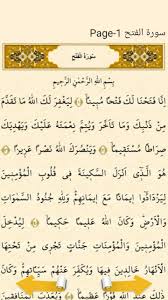 Page-1 سورة الفتح
سُورَةُ الفَتْحِ
بِسْمِ اللَّهِ الرَّحْمَٰنِ الرَّحِيمِ
إِنَّا فَتَحْنَا لَكَ فَتْحًا مُّبِينًا ﴿١﴾ لِيَغْفِرَ لَكَ اللَّهُ مَا تَقَدَّمَ
مِن ذَنبِكَ وَمَا تَأَخَّرَ وَيُتِمَّ نِعْمَتَهُ عَلَيْكَ وَيَهْدِيَكَ
صِرَاطًا مُّسْتَقِيمًا ﴿٢﴾ وَيَنصُرَكَ اللَّهُ نَصْرًا عَزِيزًا ﴿٣﴾
هُوَ الَّذِي أَنزَلَ السَّكِينَةَ فِي قُلُوبِ الْمُؤْمِنِينَ
لِيَزْدَادُوا إِيمَانًا مَّعَ إِيمَانِهِمْ وَلِلَّهِ جُنُودُ السَّمَاوَاتِ
وَالْأَرْضِ وَكَانَ اللَّهُ عَلِيمًا حَكِيمًا ﴿٤﴾ لِيُدْخِلَ
الْمُؤْمِنِينَ وَالْمُؤْمِنَاتِ جَنَّاتٍ تَجْرِي مِن تَحْتِهَا
الْأَنْهَارُ خَالِدِينَ فِيهَا وَيُكَفِّرَ عَنْهُمْ سَيِّئَاتِهِمْ وَكَانَ